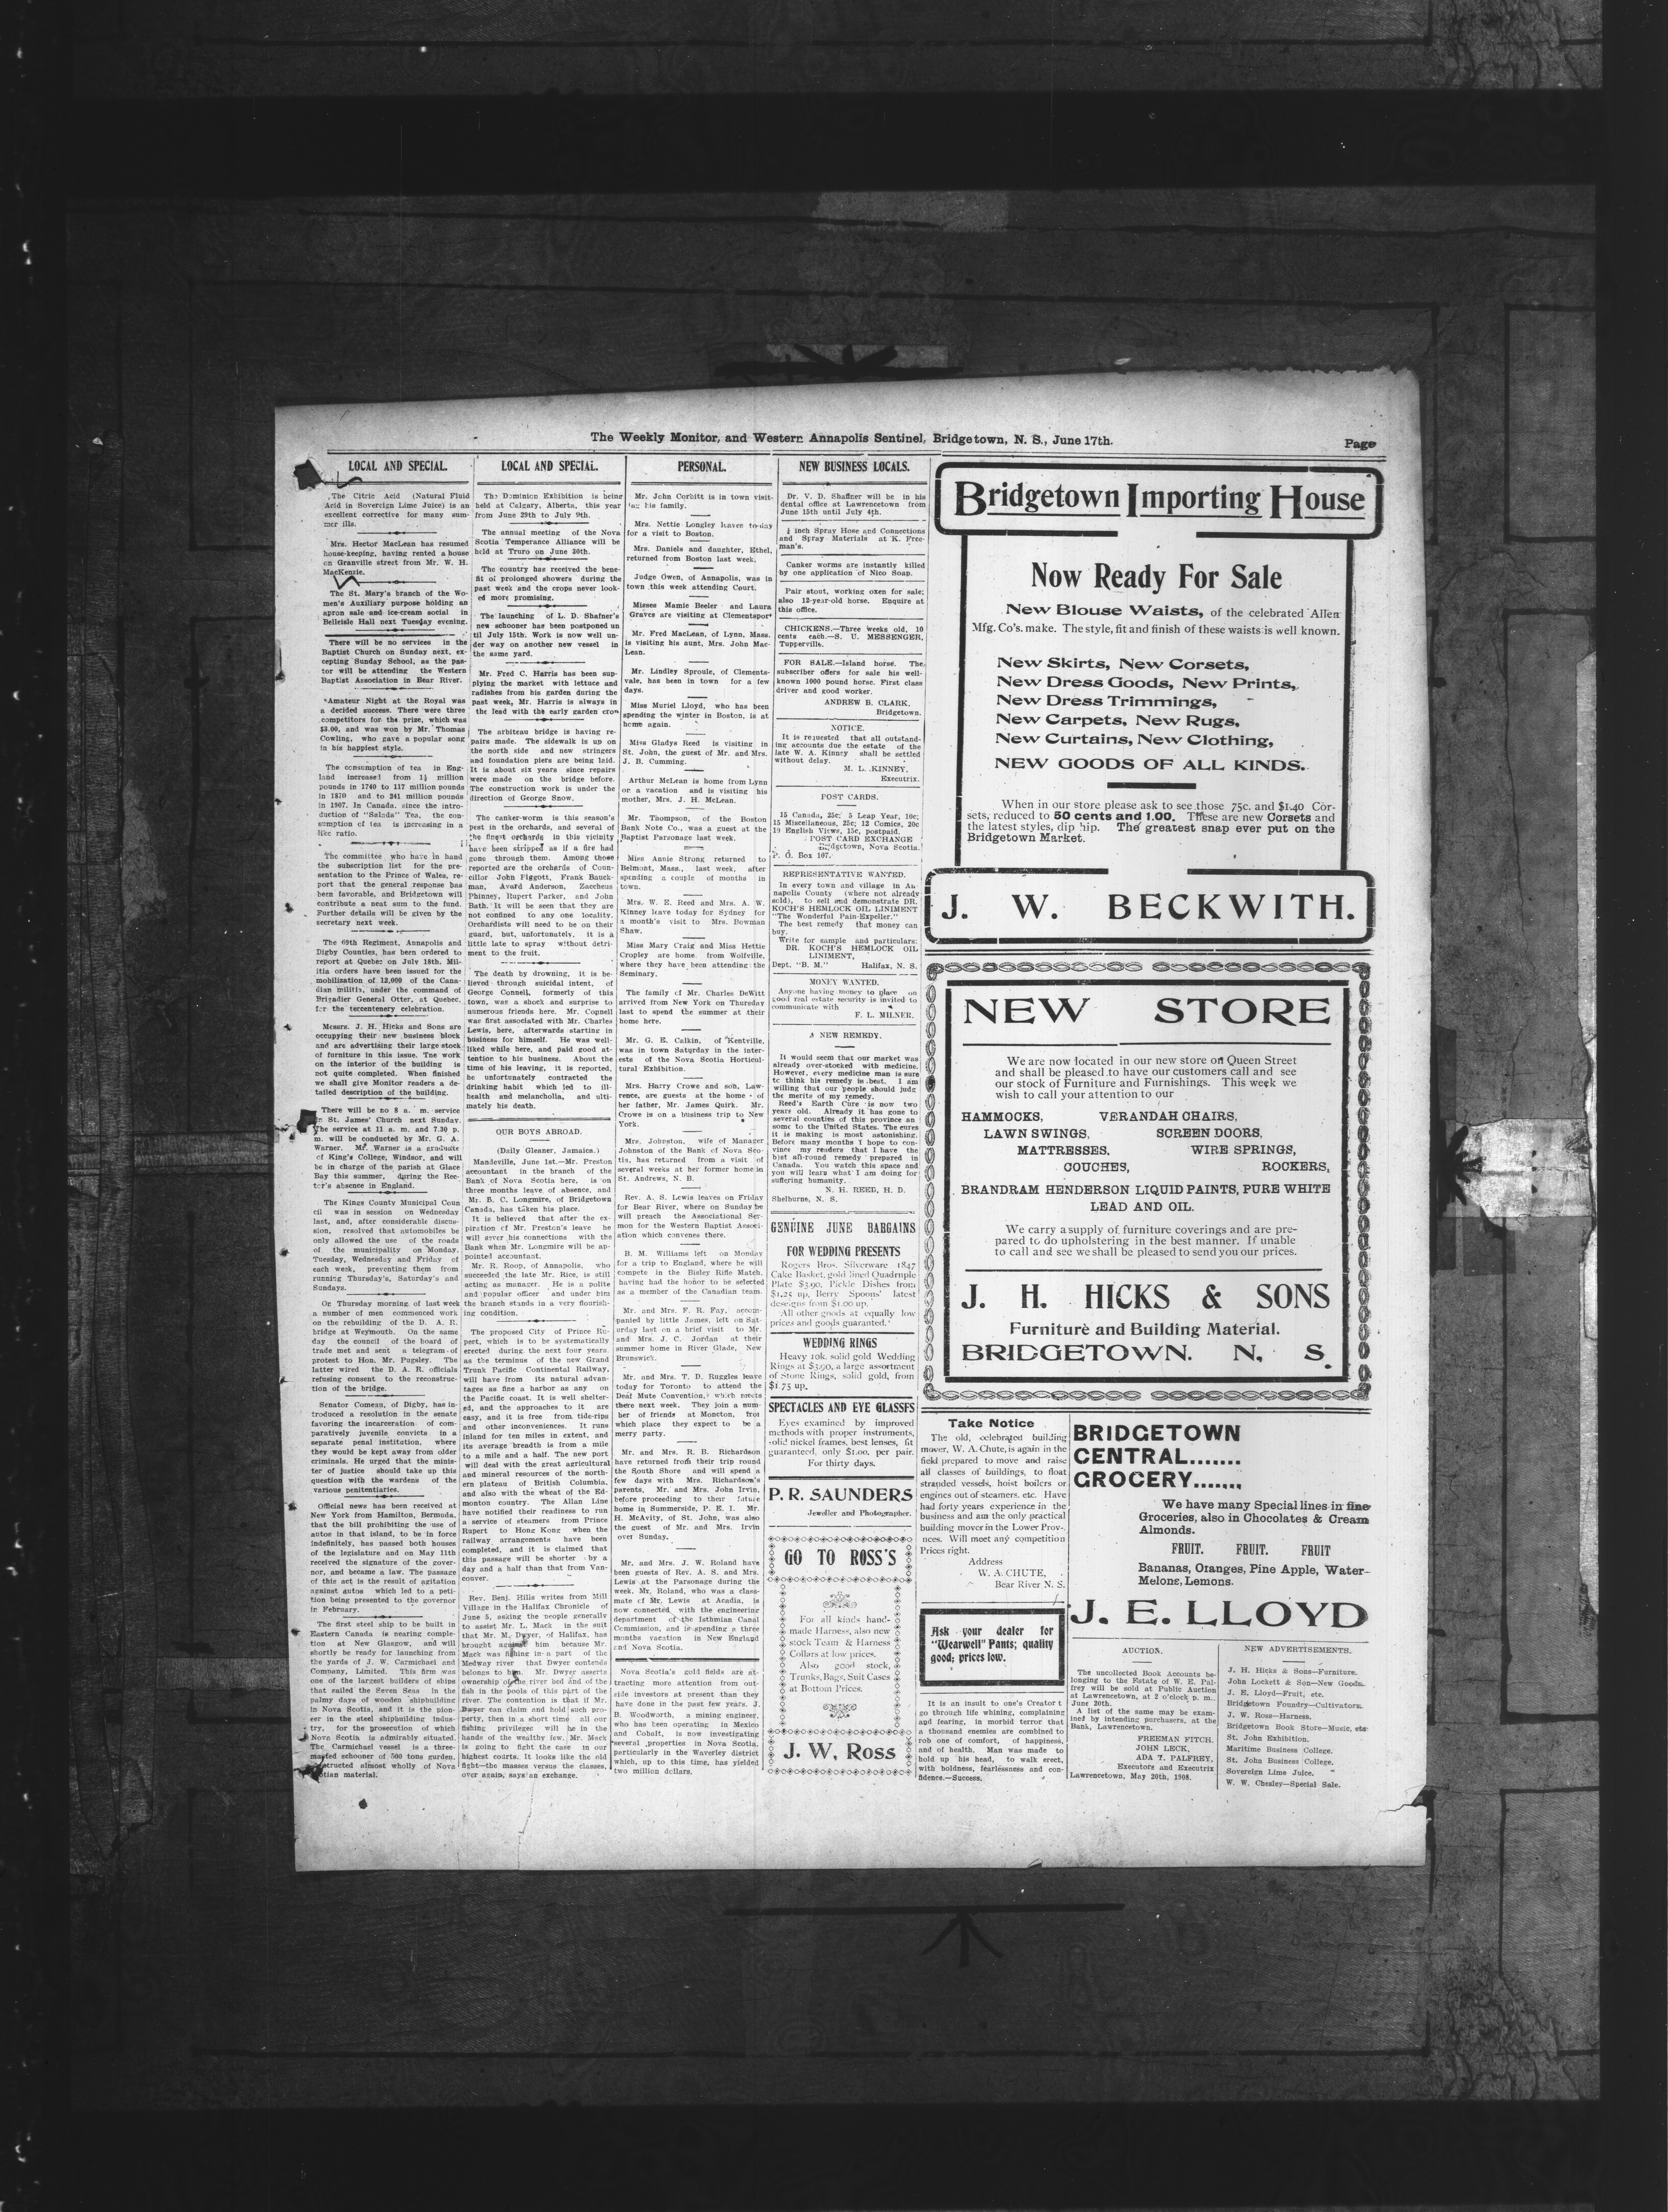 The Weekly Monitor, and Western Annapolis Sentinel, Bridgetown, N. S., June 17th.
Page
LOCAL AND SPECIAL.
The Citric Acid (Natural Fluid
Acid in Sovereign Lime Juice) is an
excellent corrective for many sum-
mer ills.
Mrs. Hector MacLean has resumed
house-keeping, having rented a house
on Granville street from Mr. W. H.
MacKenzie.
The St. Mary's branch of the Wo-
men's Auxiliary purpose holding an
apron sale and ice-cream social in
Belleisle Hall next Tuesday evening.
There will be no services in the
Baptist Church on Sunday next, ex-
cepting Sunday School, as the pas-
tor will be attending the Western
Baptist Association in Bear River.
Amateur Night at the Royal was
a decided success. There were three
competitors for the prize, which was
$3.00, and was won by Mr. Thomas
Cowling, who gave a popular song
in his happiest style.
The consumption of tea in Eng-
land increased from 1½ million
pounds in 1740 to 117 million pounds
in 1870 and to 241 million pounds
in 1907. In Canada, since the intro-
duction of "Salada" Tea, the con-
sumption of tea is increasing in a
like ratio.
The committee who have in hand
the subscription list for the pre-
sentation to the Prince of Wales, re-
port that the general response has
been favorable, and Bridgetown will
contribute a neat sum to the fund.
Further details will be given by the
secretary next week.
The 69th Regiment, Annapolis and
Digby Counties, has been ordered to
report at Quebec on July 18th. Mil-
itia orders have been issued for the
mobilisation of 12,000 of the Cana-
dian militia, under the command of
Brigadier General Otter, at Quebec,
for the tercentenery celebration.
Messrs. J. H. Hicks and Sons are
occupying their new business block
and are advertising their large stock
of furniture in this issue. The work
on the interior of the building is
not quite completed. When finished
we shall give Monitor readers a de-
tailed description of the building.
There will be no 8 a. m. service
in St. James' Church next Sunday.
The service at 11 a. m. and 7.30 p.
m. will be conducted by Mr. G. A.
Warner. Mr. Warner is a graduate
of King's College, Windsor, and will
be in charge of the parish at Glace
Bay this summer, during the Rec-
tor's absence in England.
The Kings County Municipal Coun
cil was in session on Wednesday
last, and, after considerable discus-
sion, resolved that automobiles be
only allowed the use of the roads
of the municipality on Monday,
Tuesday, Wednesday and Friday of
each week, preventing them from
running Thursday's, Saturday's and
Sundays.
On Thursday morning of last week
a number of men commenced work
on the rebuilding of the D. A. R.
bridge at Weymouth. On the same
day the council of the board of
trade met and sent a telegram of
protest to Hon. Mr. Pugsley. The
latter wired the D. A. R. officials
refusing consent to the reconstruc-
tion of the bridge.
Senator Comeau, of Digby, has in-
troduced a resolution in the senate
favoring the incarceration of com-
paratively juvenile convicts in a
separate penal institution, where
they would be kept away from older
criminals. He urged that the minis-
ter of justice should take up this
question with the wardens of the
various penitentiaries.
Official news has been received at
New York from Hamilton, Bermuda,
that the bill prohibiting the use of
autos in that island, to be in force
indefinitely, has passed both houses
of the legislature and on May 11th
received the signature of the gover-
nor, and became a law. The passage
of this act is the result of agitation
against autos which led to a peti-
tion being presented to the governor
in February.
The first steel ship to be built in
Eastern Canada is nearing comple-
tion at New Glasgow, and will
shortly be ready for launching from
the yards of J. W. Carmichael and
Company, Limited. This firm was
one of the largest builders of ships
that sailed the Seven Seas in the
palmy days of wooden shipbuilding
in Nova Scotia, and it is the pion-
eer in the steel shipbuilding indus-
try, for the prosecution of which
Nova Scotia is admirably situated.
The Carmichael vessel is a three-
masted schooner of 500 tons burden,
constructed almost wholly of Nova
Scotian material.
LOCAL AND SPECIAL.
The Dominion Exhibition is being
held at Calgary, Alberta, this year
from June 29th to July 9th.
The annual meeting of the Nova
Scotia Temperance Alliance will be
held at Truro on June 30th.
The country has received the bene-
fit of prolonged showers during the
past week and the crops never look-
ed more promising.
The launching of L. D. Shafner's
new schooner has been postponed un
til July 15th. Work is now well un-
der way on another new vessel in
the same yard.
Mr. Fred C. Harris has been sup-
plying the market with lettuce and
radishes from his garden during the
past week, Mr. Harris is always in
the lead with the early garden crop
The arbiteau bridge is having re-
pairs made. The sidewalk is up on
the north side and new stringers
and foundation piers are being laid.
It is about six years since repairs
were made on the bridge before.
The construction work is under the
direction of George Snow.
The canker-worm is this season's
pest in the orchards, and several of
the finest orchards in this vicinity
have been stripped as if a fire had
gone through them. Among those
reported are the orchards of Coun-
cillor John Piggott, Frank Bauck-
man, Avard Anderson, Zaccheus
Phinney, Rupert Parker, and John
Bath. It will be seen that they are
not confined to any one locality.
Orchardists will need to be on their
guard, but, unfortunately, it is a
little late to spray without detri-
ment to the fruit.
The death by drowning, it is be-
lieved through suicidal intent, of
George Connell, formerly of this
town, was a shock and surprise to
numerous friends here. Mr. Connell
was first associated with Mr. Charles
Lewis, here, afterwards starting in
business for himself. He was well-
liked while here, and paid good at-
tention to his business. About the
time of his leaving, it is reported,
he unfortunately contracted the
drinking habit which led to ill-
health and melancholia, and ulti-
mately his death.
OUR BOYS ABROAD.
(Daily Gleaner, Jamaica.)
Mandeville, June 1st.—Mr. Preston
accountant in the branch of the
Bank of Nova Scotia here, is on
three months leave of absence, and
Mr. B. C. Longmire, of Bridgetown
Canada, has taken his place.
It is believed that after the ex-
piration of Mr. Preston's leave he
will sever his connections with the
Bank when Mr. Longmire will be ap-
pointed accountant.
Mr. R. Roop, of Annapolis, who
succeeded the late Mr. Rice, is still
acting as manager. He is a polite
and popular officer and under him
the branch stands in a very flourish-
ing condition.
The proposed City of Prince Ru-
pert, which is to be systematically
erected during the next four years,
as the terminus of the new Grand
Trunk Pacific Continental Railway,
will have from its natural advan-
tages as fine a harbor as any on
the Pacific coast. It is well shelter-
ed, and the approaches to it are
easy, and it is free from tide-rips
and other inconveniences. It runs
inland for ten miles in extent, and
its average breadth is from a mile
to a mile and a half. The new port
will deal with the great agricultural
and mineral resources of the north-
ern plateau of British Columbia,
and also with the wheat of the Ed-
monton country. The Allan Line
have notified their readiness to run
a service of steamers from Prince
Rupert to Hong Kong when the
railway arrangements have been
completed, and it is claimed that
this passage will be shorter by a
day and a half than that from Van-
couver.
Rev. Benj. Hills writes from Mill
Village in the Halifax Chronicle of
June 5, asking the people generally
to assist Mr. L. Mack in the suit
that Mr. M. Dwyer, of Halifax, has
brought against him because Mr.
Mack was fishing in a part of the
Medway river that Dwyer contends
belongs to him. Mr. Dwyer asserts
ownership of the river bed and of the
fish in the pools of this part of the
river. The contention is that if Mr.
Dwyer can claim and hold such pro-
perty, then in a short time all our
fishing privileges will be in the
hands of the wealthy few. Mr. Mack
is going to fight the case in our
highest courts. It looks like the old
fight—the masses versus the classes,
over again, says an exchange.
PERSONAL.
Mr. John Corbitt is in town visit-
ing his family.
Mrs. Nettie Longley leaves to-day
for a visit to Boston.
Mrs. Daniels and daughter, Ethel,
returned from Boston last week.
Judge Owen, of Annapolis, was in
town this week attending Court.
Misses Mamie Beeler and Laura
Graves are visiting at Clementsport
Mr. Fred MacLean, of Lynn, Mass.
is visiting his aunt, Mrs. John Mac-
Lean.
Mr. Lindley Sproule, of Clements-
vale, has been in town for a few
days.
Miss Muriel Lloyd, who has been
spending the winter in Boston, is at
home again.
Miss Gladys Reed is visiting in
St. John, the guest of Mr. and Mrs.
J. B. Cumming.
Arthur McLean is home from Lynn
or a vacation and is visiting his
mother, Mrs. J. H. McLean.
Mr. Thompson, of the Boston
Bank Note Co., was a guest at the
Baptist Parsonage last week.
Miss Annie Strong returned to
Belmont, Mass., last week, after
spending a couple of months in
town.
Mrs. W. E. Reed and Mrs. A. W.
Kinney leave today for Sydney for
a month's visit to Mrs. Bowman
Shaw.
Miss Mary Craig and Miss Hettie
Cropley are home from Wolfville,
where they have been attending the
Seminary.
The family of Mr. Charles DeWitt
arrived from New York on Thursday
last to spend the summer at their
home here.
Mr. G. E. Calkin, of Kentville,
was in town Saturday in the inter-
ests of the Nova Scotia Horticul-
tural Exhibition.
Mrs. Harry Crowe and son, Law-
rence, are guests at the home of
her father, Mr. James Quirk. Mr.
Crowe is on a business trip to New
York.
Mrs. Johnston, wife of Manager
Johnston of the Bank of Nova Sco-
tia, has returned from a visit of
several weeks at her former home in
St. Andrews, N. B.
Rev. A. S. Lewis leaves on Friday
for Bear River, where on Sunday he
will preach the Associational Ser-
mon for the Western Baptist Associ-
ation which convenes there.
B. M. Williams left on Monday
for a trip to England, where he will
compete in the Bisley Rifle Match,
having had the honor to be selected
as a member of the Canadian team.
Mr. and Mrs. F. R. Fay, accom-
panied by little James, left on Sat-
urday last on a brief visit to Mr.
and Mrs. J. C. Jordan at their
summer home in River Glade, New
Brunswick.
Mr. and Mrs. T. D. Ruggles leave
today for Toronto to attend the
Deaf Mute Convention, which meets
there next week. They join a num-
ber of friends at Moncton, from
which place they expect to be a
merry party.
Mr. and Mrs. R. B. Richardson
have returned from their trip round
the South Shore and will spend a
few days with Mrs. Richardson's
parents, Mr. and Mrs. John Irvin,
before proceeding to their future
home in Summerside, P. E. I. Mr.
H. McAvity, of St. John, was also
the guest of Mr. and Mrs. Irvin
over Sunday.
Mr. and Mrs. J. W. Roland have
been guests of Rev. A. S. and Mrs.
Lewis at the Parsonage during the
week. Mr. Roland, who was a class-
mate of Mr. Lewis at Acadia, is
now connected with the engineering
department of the Isthmian Canal
Commission, and is spending a three
months vacation in New England
and Nova Scotia.
Nova Scotia's gold fields are at-
tracting more attention from out-
side investors at present than they
have done in the past few years. J.
B. Woodworth, a mining engineer,
who has been operating in Mexico
and Cobalt, is now investigating
several properties in Nova Scotia,
particularly in the Waverley district
which, up to this time, has yielded
two million dollars.
NEW BUSINESS LOCALS.
Dr. V. D. Shaffner will be in his
dental office at Lawrencetown from
June 15th until July 4th.
½ inch Spray Hose and Connections
and Spray Materials at K. Free-
man's.
Canker worms are instantly killed
by one application of Nico Soap.
Pair stout, working oxen for sale;
also 12-year-old horse. Enquire at
this office.
CHICKENS.—Three weeks old, 10
cents each.—S. U. MESSENGER,
Tupperville.
FOR SALE.—Island horse. The
subscriber offers for sale his well-
known 1000 pound horse. First class
driver and good worker.
ANDREW B. CLARK,
Bridgetown.
NOTICE.
It is requested that all outstand-
ing accounts due the estate of the
late W. A. Kinney shall be settled
without delay.
M. L. KINNEY,
Executrix.
POST CARDS.
15 Canada, 25c; 5 Leap Year, 10c;
15 Miscellaneous, 25c; 12 Comics, 20c
10 English Views, 15c, postpaid.
POST CARD EXCHANGE
Bridgetown, Nova Scotia.
P. O. Box 107.
REPRESENTATIVE WANTED.
In every town and village in An-
napolis County (where not already
sold), to sell and demonstrate DR.
KOCH'S HEMLOCK OIL LINIMENT
"The Wonderful Pain-Expeller."
The best remedy that money can
buy.
Write for sample and particulars:
DR. KOCH'S HEMLOCK OIL
LINIMENT,
Dept. "B. M." Halifax, N. S.
MONEY WANTED.
Anyone having money to place on
good real estate security is invited to
communicate with
F. L. MILNER.
A NEW REMEDY.
It would seem that our market was
already over-stocked with medicine.
However, every medicine man is sure
to think his remedy is best. I am
willing that our people should judg
the merits of my remedy.
Reed's Earth Cure is now two
years old. Already it has gone to
several counties of this province an
some to the United States. The cures
it is making is most astonishing.
Before many months I hope to con-
vince my readers that I have the
bist all-round remedy prepared in
Canada. You watch this space and
you will learn what I am doing for
suffering humanity.
N. H. REED, H. D.
Shelburne, N. S.
GENUINE JUNE BARGAINS
FOR WEDDING PRESENTS
Rogers Bros. Silverware 1847
Cake Basket, gold lined Quadruple
Plate $3.90, Pickle Dishes from
$1.25 up, Berry Spoons' latest
designs from $1.00 up.
All other goods at equally low
prices and goods guaranted.
WEDDING RINGS
Heavy 10k. solid gold Wedding
Rings at $3.90, a large assortment
of Stone Rings, solid gold, from
$1.75 up.
SPECTACLES AND EYE GLASSES
Eyes examined by improved
methods with proper instruments,
solid nickel frames, best lenses, fit
guaranteed, only $1.00. per pair.
For thirty days.
P. R. SAUNDERS
Jeweller and Photographer.
GO TO ROSS'S
For all kinds hand-
made Harness, also new
stock Team & Harness
Collars at low prices.
Also good stock,
Trunks, Bags, Suit Cases
at Bottom Prices.
J. W. Ross
Bridgetown Importing House
Now Ready For Sale
New Blouse Waists, of the celebrated Allen
Mfg. Co's. make. The style, fit and finish of these waists is well known.
New Skirts, New Corsets,
New Dress Goods, New Prints,
New Dress Trimmings,
New Carpets, New Rugs,
New Curtains, New Clothing,
NEW GOODS OF ALL KINDS.
When in our store please ask to see those 75c. and $1.40 Cor-
sets, reduced to 50 cents and 1.00. These are new Corsets and
the latest styles, dip hip. The greatest snap ever put on the
Bridgetown Market.
J. W. BECKWITH.
NEW STORE
We are now located in our new store on Queen Street
and shall be pleased to have our customers call and see
our stock of Furniture and Furnishings. This week we
wish to call your attention to our
HAMMOCKS, VERANDAH CHAIRS,
LAWN SWINGS, SCREEN DOORS,
MATTRESSES, WIRE SPRINGS,
COUCHES, ROCKERS,
BRANDRAM HENDERSON LIQUID PAINTS, PURE WHITE
LEAD AND OIL.
We carry a supply of furniture coverings and are pre-
pared to do upholstering in the best manner. If unable
to call and see we shall be pleased to send you our prices.
J. H. HICKS & SONS
Furniture and Building Material.
BRIDGETOWN. N. S.
Take Notice
The old, celebrated building
mover, W. A. Chute, is again in the
field prepared to move and raise
all classes of buildings, to float
stranded vessels, hoist boilers or
engines out of steamers, etc. Have
had forty years experience in the
business and am the only practical
building mover in the Lower Prov-
nces. Will meet any competition
Prices right.
Address
W. A. CHUTE,
Bear River N. S.
Ask your dealer for
"Wearwell" Pants; quality
good; prices low.
It is an insult to one's Creator t
go through life whining, complaining
and fearing, in morbid terror that
a thousand enemies are combined to
rob one of comfort, of happiness,
and of health. Man was made to
hold up his head, to walk erect,
with boldness, fearlessness and con-
fidence.—Success.
BRIDGETOWN
CENTRAL.......
GROCERY.......
We have many Special lines in fine
Groceries, also in Chocolates & Cream
Almonds.
FRUIT. FRUIT. FRUIT
Bananas, Oranges, Pine Apple, Water-
Melons, Lemons.
J. E. LLOYD
AUCTION.
The uncollected Book Accounts be-
longing to the Estate of W. E. Pal-
frey will be sold at Public Auction
at Lawrencetown, at 2 o'clock p. m.,
June 20th.
A list of the same may be exam-
ined by intending purchasers, at the
Bank, Lawrencetown.
FREEMAN FITCH.
JOHN LECK,
ADA T. PALFREY,
Executors and Executrix
Lawrencetown, May 20th, 1908.
NEW ADVERTISEMENTS.
J. H. Hicks & Sons—Furniture.
John Lockett & Son—New Goods.
J. E. Lloyd—Fruit, etc.
Bridgetown Foundry—Cultivators.
J. W. Ross—Harness.
Bridgetown Book Store—Music, etc
St. John Exhibition.
Maritime Business College.
St. John Business College.
Sovereign Lime Juice.
W. W. Chesley—Special Sale.